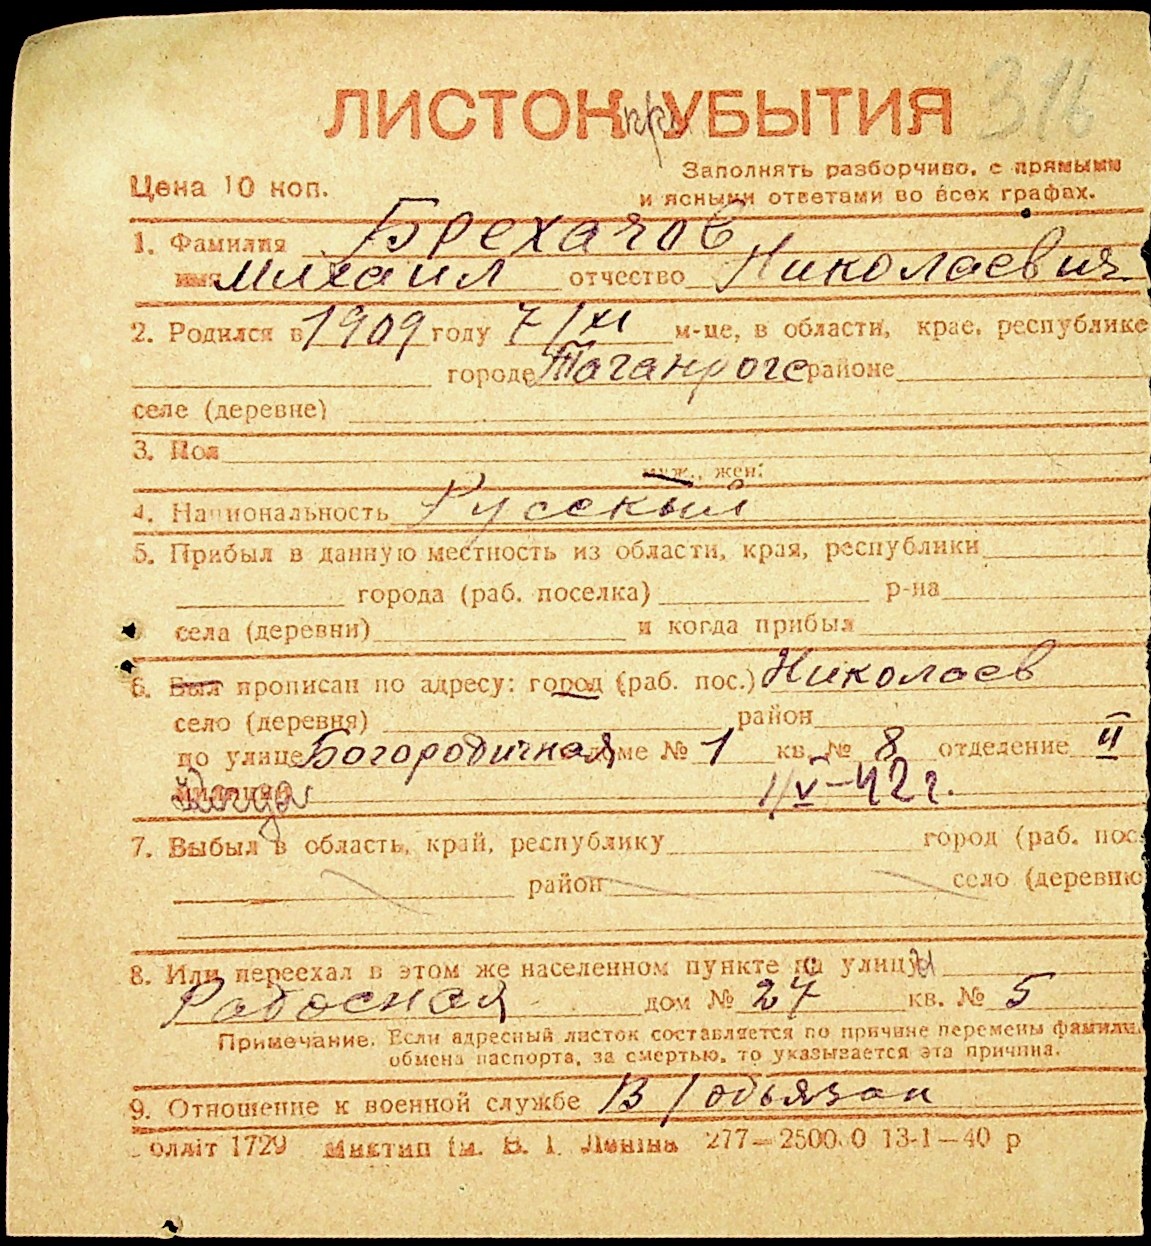 316
ЛИСТОК при УБЫТИЯ
Цена 10 коп.
Заполнять разборчиво, с прямыми
и ясными ответами во всех графах.
1. Фамилия Брехачов
имя Михаил отчество Николаевич
2. Родился в 1909 году 7/XI м-це, в области, крае, республике
городе Таганроге районе
селе (деревне)
3. Пол
муж., жен.
4. Национальность Русский
5. Прибыл в данную местность из области, края, республики
города (раб. поселка) р-на
села (деревни) и когда прибыл
6. Был прописан по адресу: город (раб. пос.) Николаев
село (деревня) район
по улице Богородичная доме № 1 кв. № 8 отделение II
1/V-42 г.
7. Выбыл в область, край, республику город (раб. пос.
район село (деревню
8. Или переехал в этом же населенном пункте на улицу
Рабосная дом № 27 кв. № 5
Примечание. Если адресный листок составляется по причине перемены фамилии,
обмена паспорта, за смертью, то указывается эта причина.
9. Отношение к военной службе В/обьязан
олліт 1729 Миктип ім. В. І. Леніна 277—2500.0 13-1—40 р